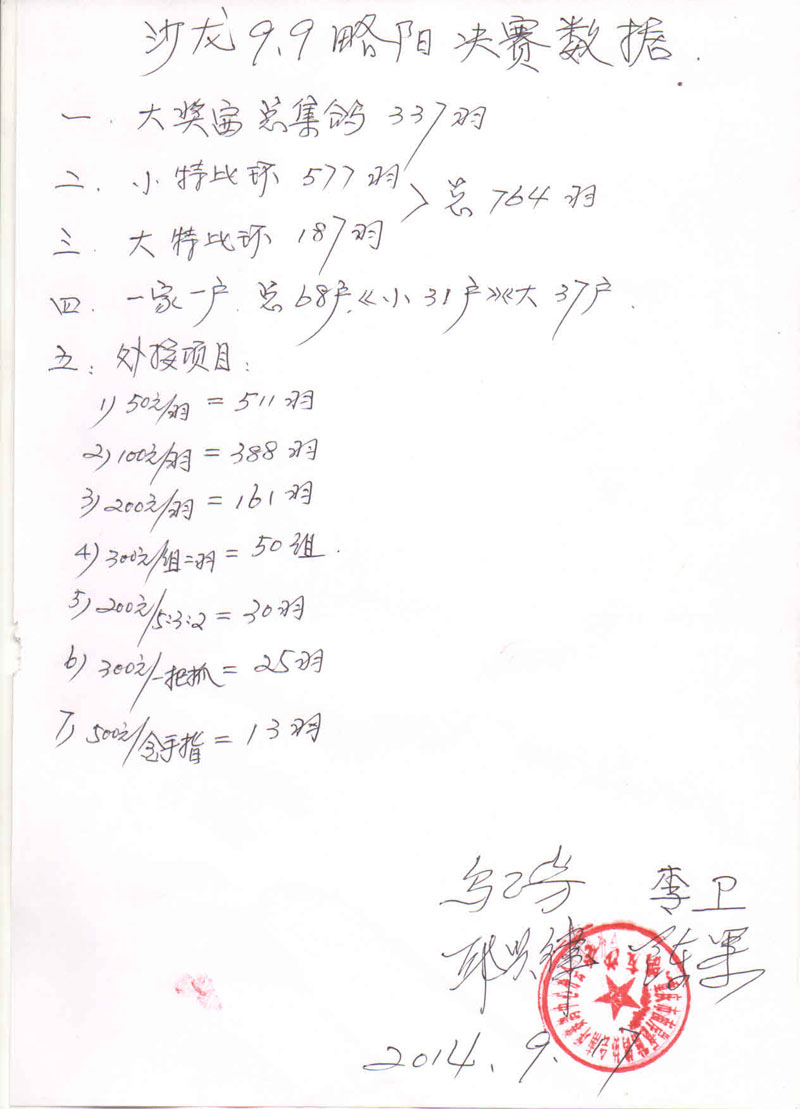 沙龙9.9略阳决赛数据.
一. 大奖赛总集鸽 337羽
二. 小特比环 577羽
> 总764羽
三. 大特比环 187羽
四. 一家一户. 总68户.《小31户》《大37户.
五: 外接项目:
1) 50元/羽 = 511羽
2) 100元/羽 = 388羽
3) 200元/羽 = 161羽
4) 300元/组=羽 = 50组.
5) 200元/5:3:2 = 30羽
6) 300元/一把抓 = 25羽
7) 500元/金手指 = 13羽
李卫
2014.9.17